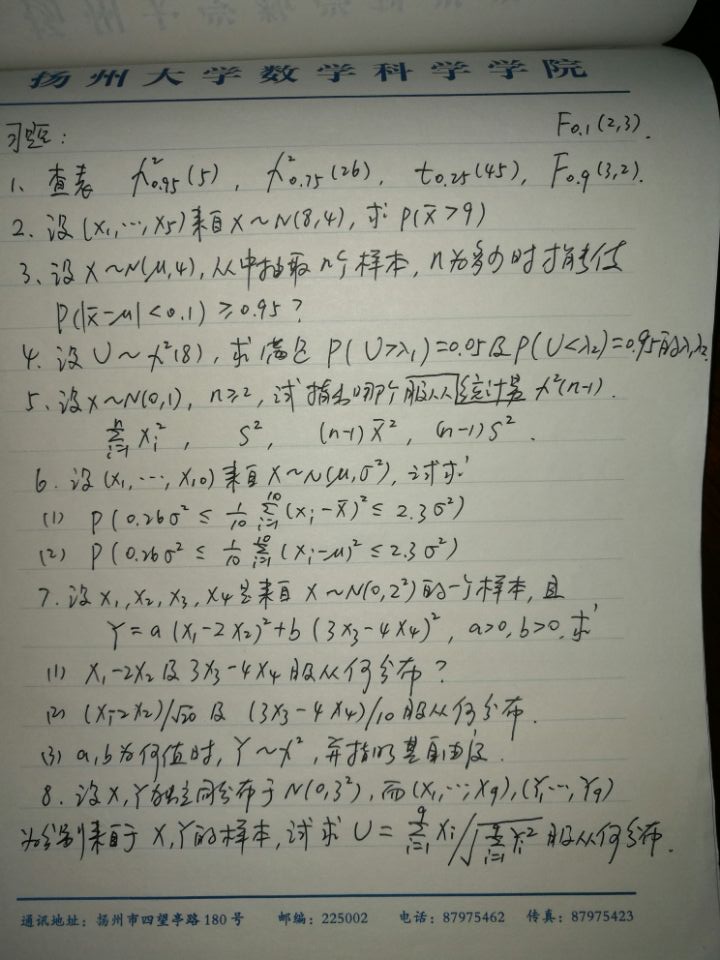 扬州大学数学科学学院
习题:
F0.1(2,3).
1、查表 χ²0.95(5), χ²0.75(26), t0.25(45), F0.9(3,2).
2、设(X1,…,X5)来自X~N(8,4), 求 P(X̄>9)
3、设X~N(μ,4), 从中抽取n个样本, n为多少时才能使
P(|X̄-μ|<0.1)≥0.95?
4、设U~χ²(8), 求满足 P(U>λ1)=0.05及P(U<λ2)=0.95的λ1,λ2.
5、设X~N(0,1), n≥2, 试指出哪个服从统计量 χ²(n-1).
∑ⁿᵢ₌₁ Xi², S², (n-1)X̄², (n-1)S².
6. 设(X1,…,X10)来自X~N(μ,σ²), 试求
(1) P(0.26σ² ≤ 1/10 ∑¹⁰ᵢ₌₁(Xi-X̄)² ≤ 2.3σ²)
(2) P(0.26σ² ≤ 1/10 ∑¹⁰ᵢ₌₁(Xi-μ)² ≤ 2.3σ²)
7. 设X1,X2,X3,X4是来自X~N(0,2²)的一个样本, 且
Y=a(X1-2X2)²+b(3X3-4X4)², a>0,b>0,求
(1) X1-2X2及3X3-4X4服从何分布?
(2) (X1-2X2)/√20 及 (3X3-4X4)/10服从何分布.
(3) a,b为何值时, Y~χ², 并指明其自由度.
8. 设X,Y独立同分布于N(0,3²), 而(X1,…,X9),(Y1,…,Y9)
为分别来自于X,Y的样本, 试求 U=∑⁹ᵢ₌₁Xi/√∑⁹ᵢ₌₁Yi² 服从何分布.
通讯地址:扬州市四望亭路180号 邮编:225002 电话:87975462 传真:87975423